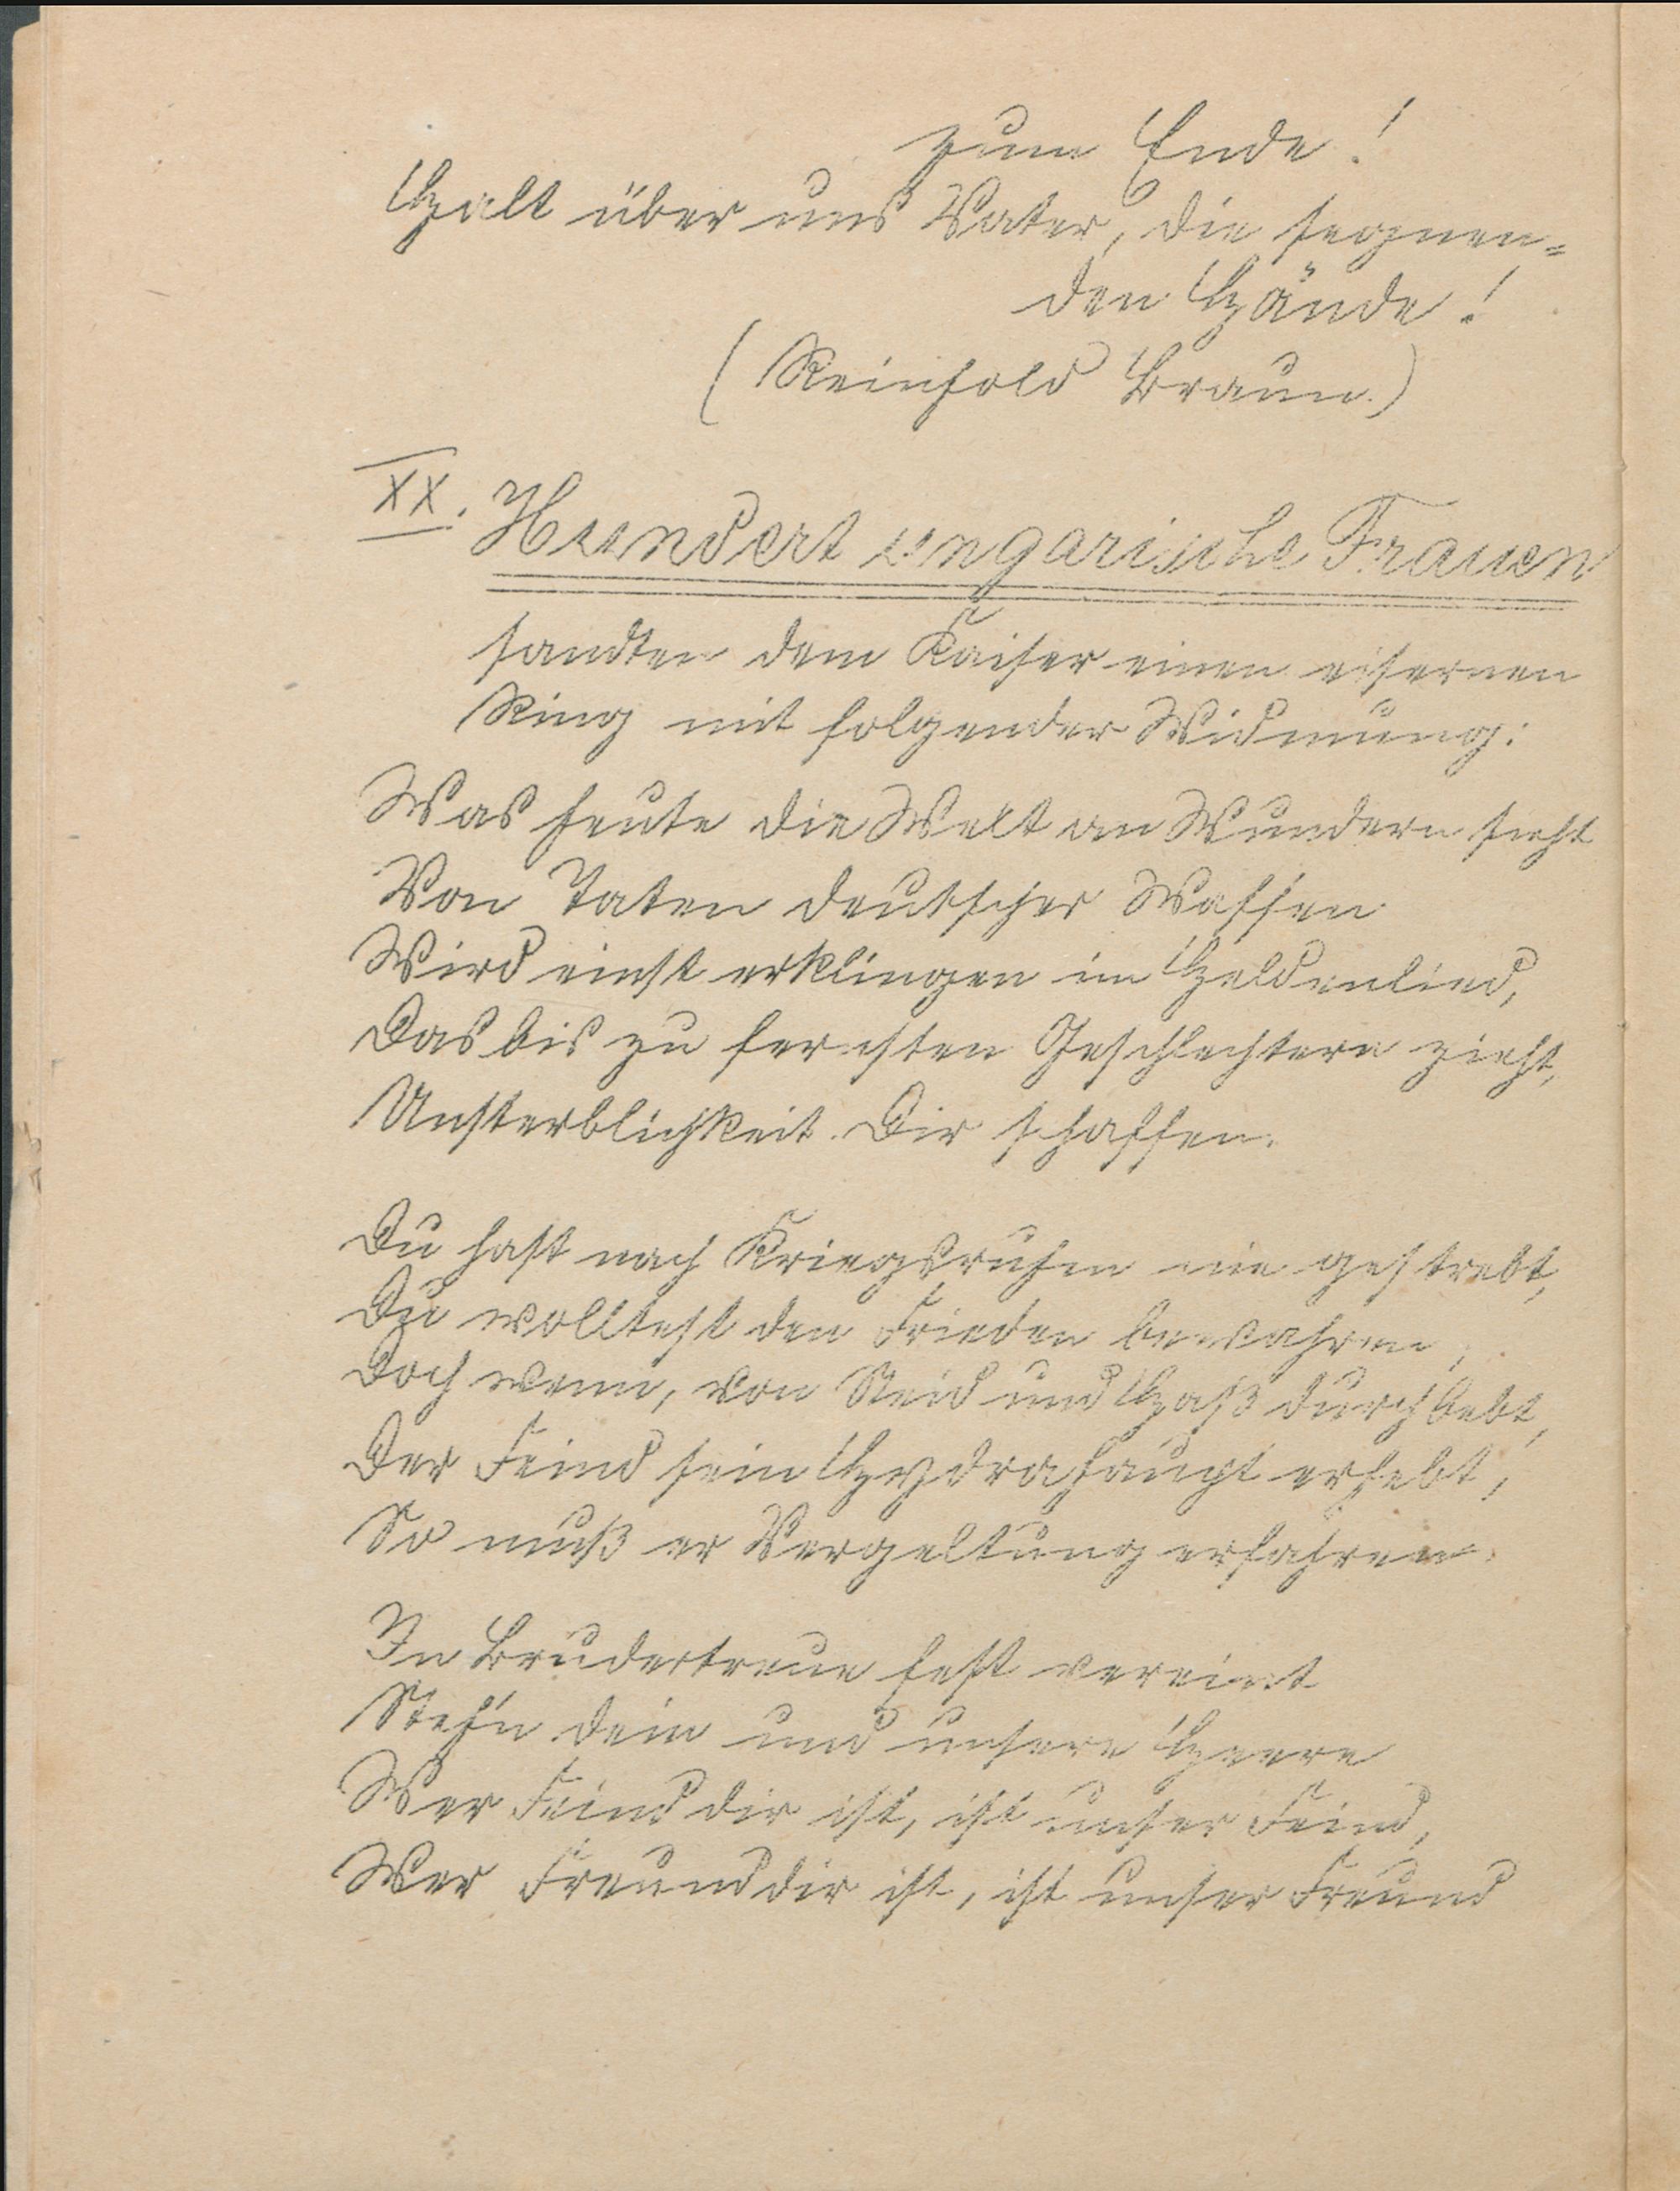 zum Ende!
Halt über uns Vater, die segnen=
den Hände!
(Reinhold Braun.)
XX. Hundert ungarische Frauen
sandten dem Kaiser einen eisernen
Ring mit folgender Widmung:
Was heute die Welt an Wundern sieht
Von Taten deutscher Waffen
Wird einst erklingen im Heldenlied,
Das bis zu fernsten Geschlechtern zieht,
Unsterblichkeit Dir schaffen.
Du hast nach Kriegsruhm nie gestrebt,
Du wolltest den Frieden bewahren,
Doch wenn, von Neid und Haß durchbebt,
Der Feind sein Hydrahaupt erhebt,
So muß er Vergeltung erfahren.
In Brudertreue fest vereint
Steh'n dein und unsere Heere
Wer Feind dir ist, ist unser Feind,
Wer Freund dir ist, ist unser Freund